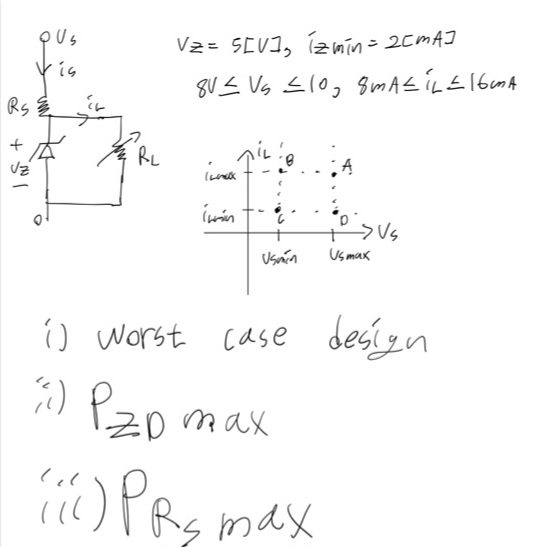 Vs
is
Rs
iL
+
Vz
−
RL
0
Vz = 5[V], izmin = 2[mA]
8V ≤ Vs ≤ 10, 8mA ≤ iL ≤ 16mA
iL
B
A
iLmax
iLmin
C
D
Vs
Vsmin
Vsmax
i) worst case design
ii) PZD max
iii) PRs max